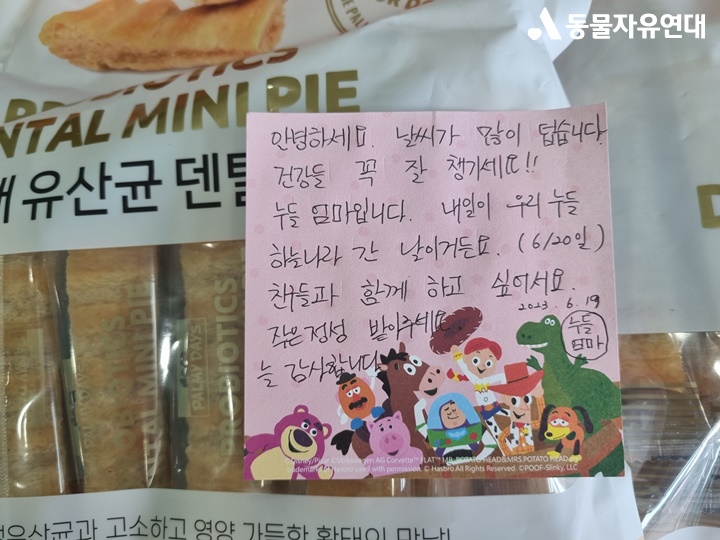 동물자유연대
PROBIOTICS
DENTAL MINI PIE
유산균 덴탈
안녕하세요. 날씨가 많이 덥습니다.
건강들 꼭 잘 챙기세요!!
누들 엄마입니다. 내일이 우리 누들
하늘나라 간 날이거든요. (6/20일)
친구들과 함께 하고 싶어서요.
2023. 6. 19
작은정성 받아주세요
누들
엄마
늘 감사합니다
MR. POTATO HEAD & MRS. POTATO HEAD
used with permission. © Hasbro All Rights Reserved. ©POOF-Slinky, LLC
유산균과 고소하고 영양 가득한 황태의 만남!